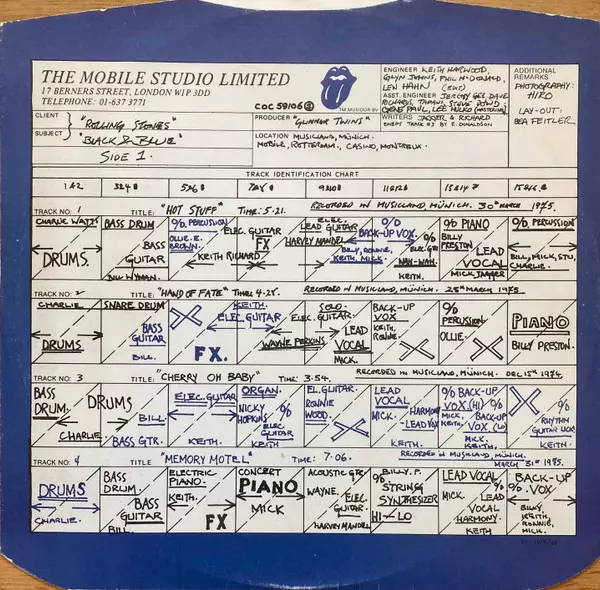 THE MOBILE STUDIO LIMITED
17 BERNERS STREET, LONDON W1P 3DD
TELEPHONE: 01-637 3771
COC 59106
TM MUSIDOR BV
ENGINEER KEITH HARWOOD,
GLYN JOHNS, PHIL McDONALD,
LEW HAHN
ASST. ENGINEER JEREMY GEE, DAVE
RICHARDS, TAPANI, STEVE DOWD
GENE PAUL, LEE HULKO (MASTERING)
WRITERS JAGGER & RICHARD
EXCEPT TRACK #3 BY E. DONALDSON
ADDITIONAL
REMARKS
PHOTOGRAPHY:
HIRO
LAY-OUT:
BEA FEITLER
CLIENT "ROLLING STONES"
SUBJECT "BLACK & BLUE"
SIDE 1.
PRODUCER "GLIMMER TWINS"
LOCATION MUSICLAND, MÜNICH.
MOBILE, ROTTERDAM, CASINO, MONTREUX
TRACK IDENTIFICATION CHART
TRACK NO. 1 TITLE: "HOT STUFF" TIME: 5.21. RECORDED IN MUSICLAND, MÜNICH. 30th MARCH 1975.
CHARLIE WATTS
DRUMS.
BASS DRUM
BASS
GUITAR
BILL WYMAN.
% PERCUSSION
OLLIE. E.
BROWN.
KEITH RICHARD
ELEC. GUITAR
FX
ELEC.
LEAD GUITAR
HARVEY MANDEL
O/D
BACK-UP VOX.
BILLY, RONNIE,
KEITH, MICK.
% ELEC. GTR
WAH-WAH.
KEITH.
% PIANO
BILLY
PRESTON
LEAD
VOCAL
MICK JAGGER
% PERCUSSION
BILL, MICK, STU,
CHARLIE.
TRACK NO. 2 TITLE: "HAND OF FATE" TIME: 4.28. RECORDED IN MUSICLAND, MÜNICH. 25th MARCH, 1975.
CHARLIE
DRUMS
SNARE DRUM
BASS
GUITAR
BILL.
FX.
KEITH.
ELEC. GUITAR
WAYNE PERKINS
SOLO.
ELEC. GUITAR
LEAD
VOCAL
MICK.
BACK-UP
VOX
KEITH,
RONNIE.
%
PERCUSSION
OLLIE.
PIANO
BILLY PRESTON.
TRACK NO. 3 TITLE: "CHERRY OH BABY" TIME: 3.54. RECORDED IN MUSICLAND, MÜNICH. DEC 15th 1974.
BASS
DRUM.
CHARLIE
DRUMS
BILL.
BASS GTR.
ELEC. GUITAR
KEITH.
ORGAN.
NICKY
HOPKINS
%
ELEC.
GUITAR
KEITH
EL. GUITAR.
RONNIE
WOOD.
LEAD
VOCAL
MICK.
HARMONY
LEAD VOX
KEITH.
% BACK-UP
VOX (HI) %
MICK, BACK-UP
KEITH. VOX (LO)
MICK.
KEITH.
%
RHYTHM
GUITAR
KEITH.
TRACK NO. 4 TITLE: "MEMORY MOTEL" TIME: 7.06. RECORDED IN MUSICLAND, MÜNICH.
MARCH 31st 1975.
DRUMS
CHARLIE.
BASS
DRUM.
BASS
GUITAR
BILL.
ELECTRIC
PIANO.
KEITH.
FX
CONCERT
PIANO
MICK
ACOUSTIC GTR
WAYNE.
ELEC.
GUITAR.
HARVEY MANDEL
BILLY. P.
STRING
SYNTHESIZER
HI-LO
LEAD VOCAL
MICK.
%
LEAD
VOCAL
HARMONY.
KEITH
BACK-UP
% VOX
BILLY,
KEITH,
RONNIE,
MICK.